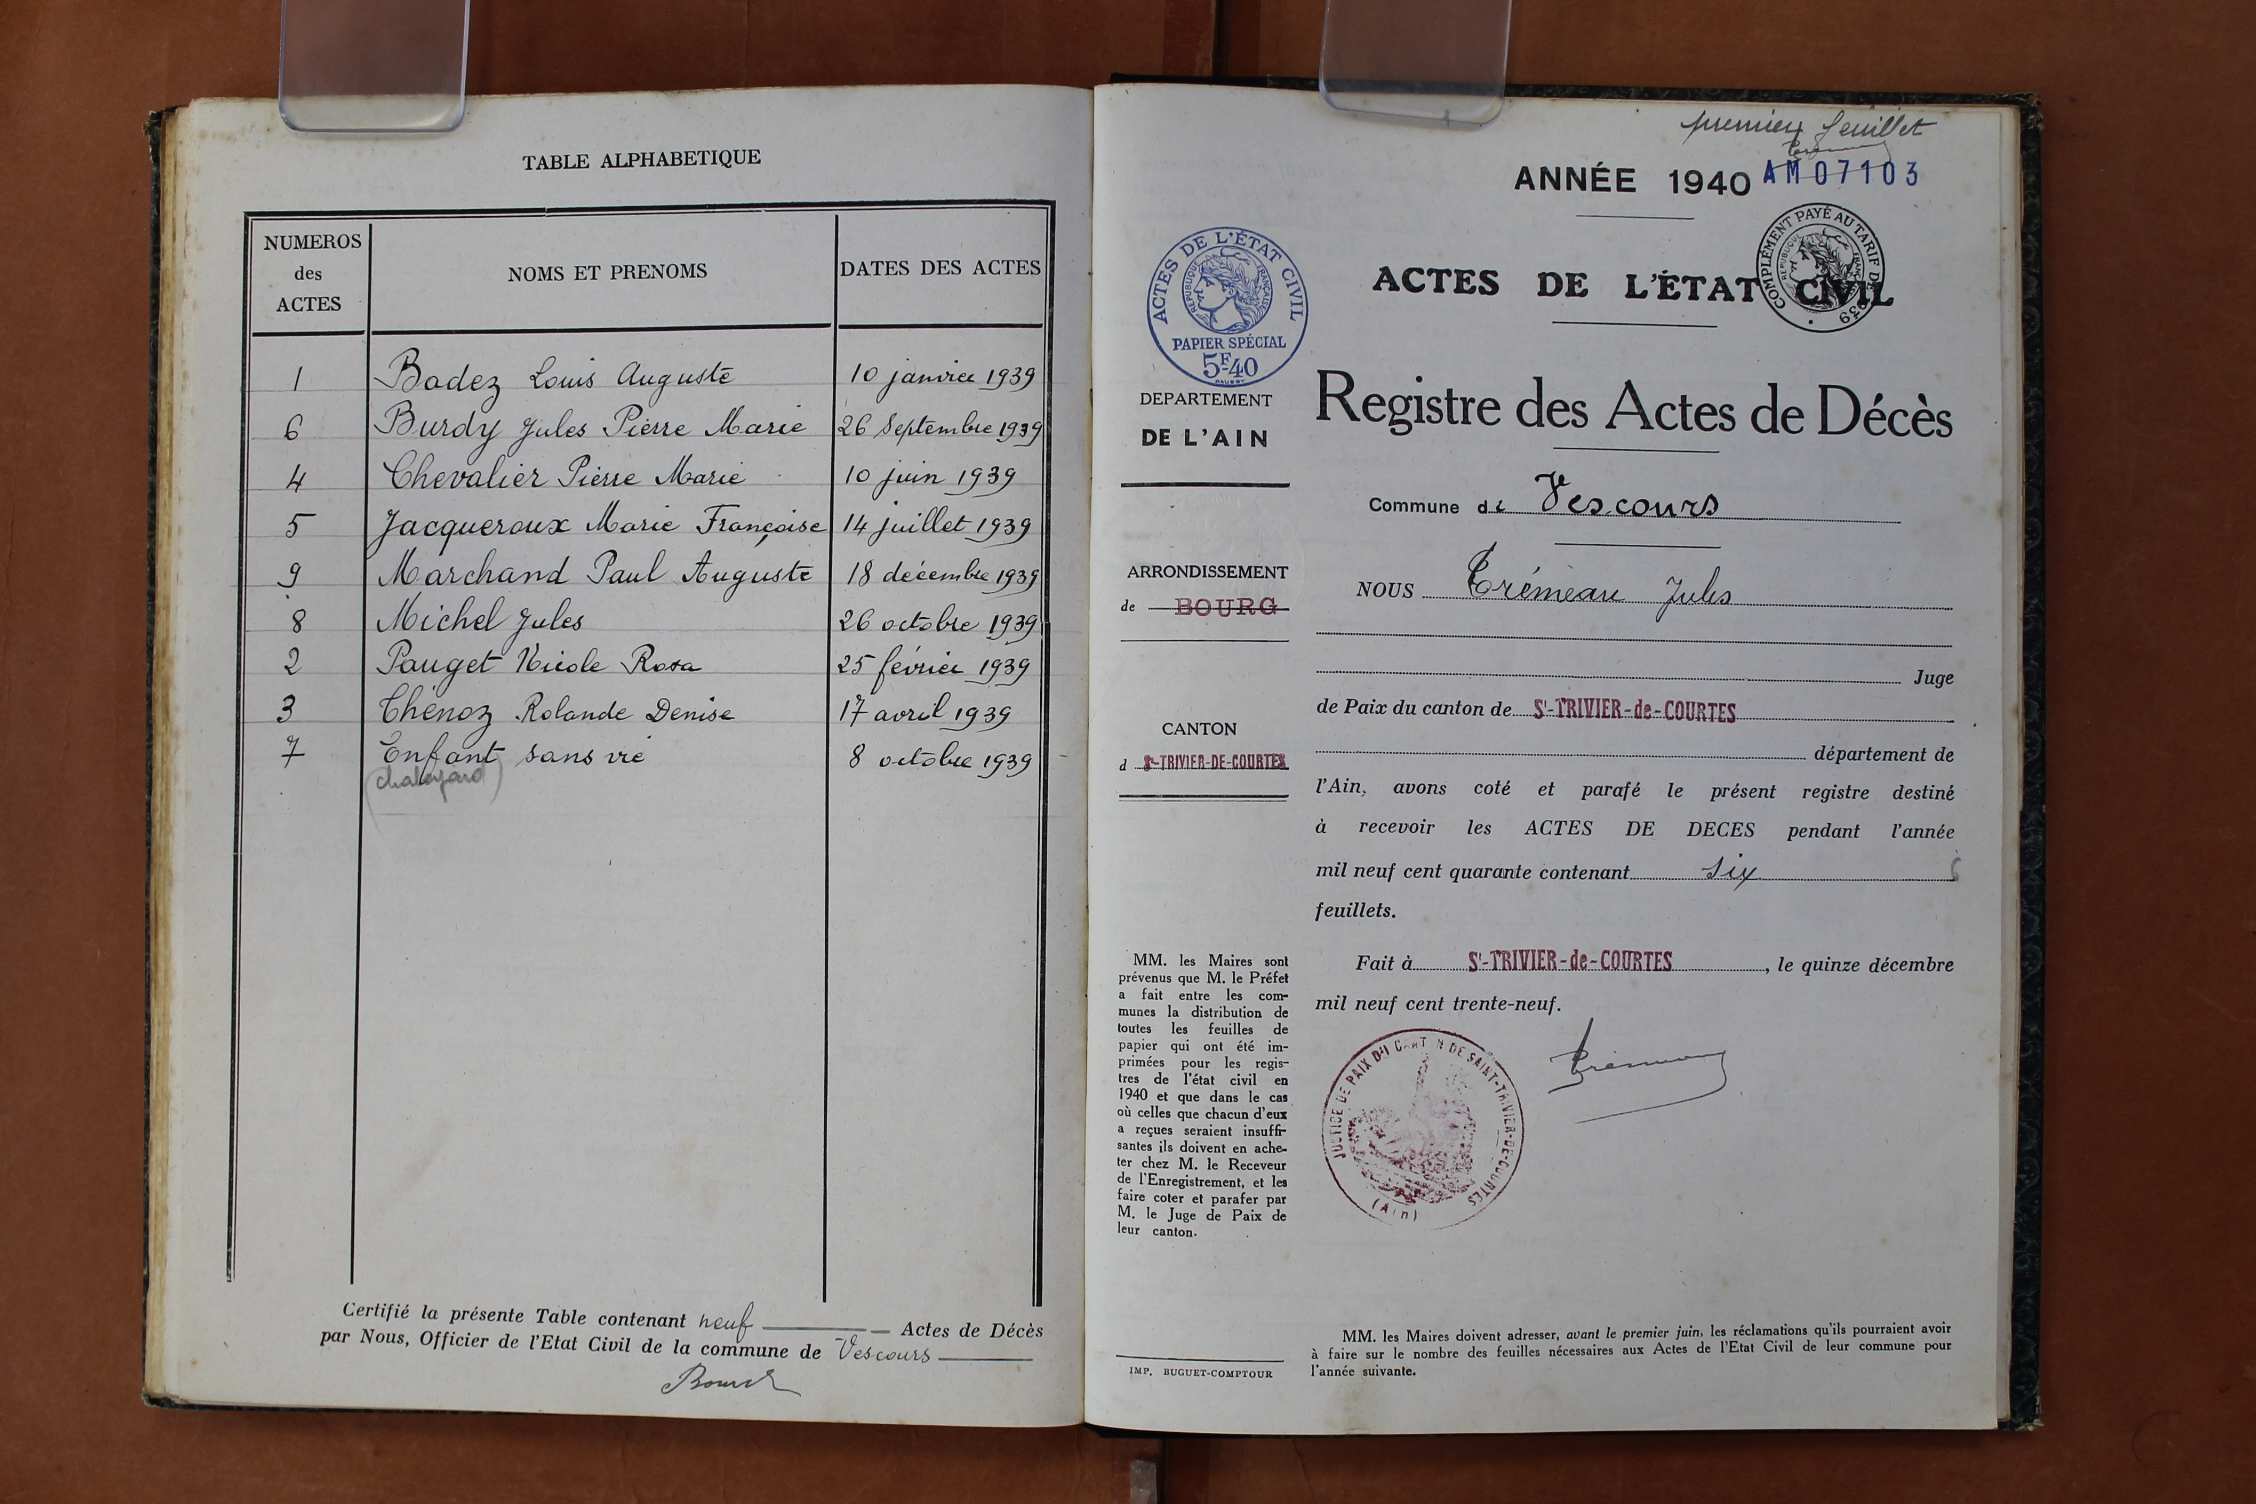 TABLE ALPHABETIQUE
NUMEROS des ACTES
NOMS ET PRENOMS
DATES DES ACTES
1 Badez Louis Auguste 10 janvier 1939
6 Burdy Jules Pierre Marie 26 Septembre 1939
4 Chevalier Pierre Marie 10 juin 1939
5 Jacqueroux Marie Françoise 14 juillet 1939
9 Marchand Paul Auguste 18 décembre 1939
8 Michel Jules 26 octobre 1939
2 Pauget Nicole Rosa 25 février 1939
3 Thénoz Rolande Denise 17 avril 1939
7 Enfant sans vie 8 octobre 1939
Certifié la présente Table contenant neuf Actes de Décès
par Nous, Officier de l'Etat Civil de la commune de Vescours
premier feuillet
ANNÉE 1940
AM07103
ACTES DE L'ÉTAT CIVIL
COMPLÉMENT PAYÉ AU TARIF DE 1939
REPUBLIQUE FRANÇAISE
ACTES DE L'ÉTAT CIVIL
REPUBLIQUE FRANÇAISE
PAPIER SPÉCIAL
5F40
DEPARTEMENT
DE L'AIN
Registre des Actes de Décès
Commune de Vescours
ARRONDISSEMENT
de BOURG
NOUS Trémeau Jules
Juge
de Paix du canton de St-TRIVIER-de-COURTES
CANTON
d St-TRIVIER-DE-COURTES
département de
l'Ain, avons coté et parafé le présent registre destiné
à recevoir les ACTES DE DECES pendant l'année
mil neuf cent quarante contenant six 6
feuillets.
Fait à St-TRIVIER-de-COURTES, le quinze décembre
mil neuf cent trente-neuf.
MM. les Maires sont
prévenus que M. le Préfet
a fait entre les com-
munes la distribution de
toutes les feuilles de
papier qui ont été im-
primées pour les regis-
tres de l'état civil en
1940 et que dans le cas
où celles que chacun d'eux
a reçues seraient insuffi-
santes ils doivent en ache-
ter chez M. le Receveur
de l'Enregistrement, et les
faire coter et parafer par
M. le Juge de Paix de
leur canton.
JUSTICE DE PAIX DU CANTON DE SAINT-TRIVIER-DE-COURTES
(Ain)
MM. les Maires doivent adresser, avant le premier juin, les réclamations qu'ils pourraient avoir
à faire sur le nombre des feuilles nécessaires aux Actes de l'Etat Civil de leur commune pour
l'année suivante.
IMP. BUGUET-COMPTOUR